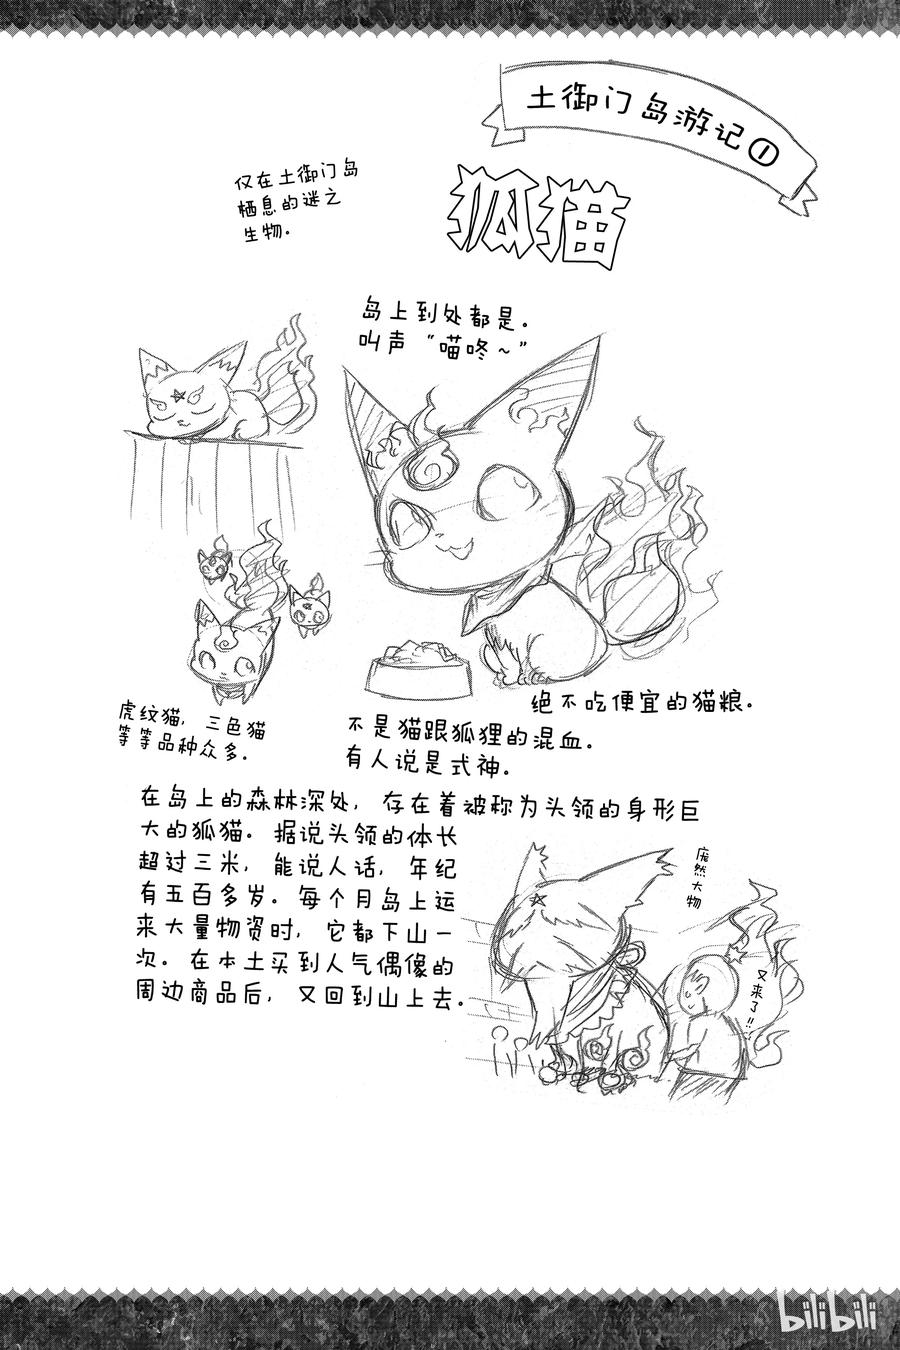 土御门岛游记①
狐猫
仅在土御门岛
栖息的谜之
生物。
岛上到处都是。
叫声“喵咚~”
绝不吃便宜的猫粮。
虎纹猫，三色猫
等等品种众多。
不是猫跟狐狸的混血。
有人说是式神。
在岛上的森林深处，存在着被称为头领的身形巨
大的狐猫。据说头领的体长
超过三米，能说人话，年纪
有五百多岁。每个月岛上运
来大量物资时，它都下山一
次。在本土买到人气偶像的
周边商品后，又回到山上去。
庞然大物
又来了!!
bilibili